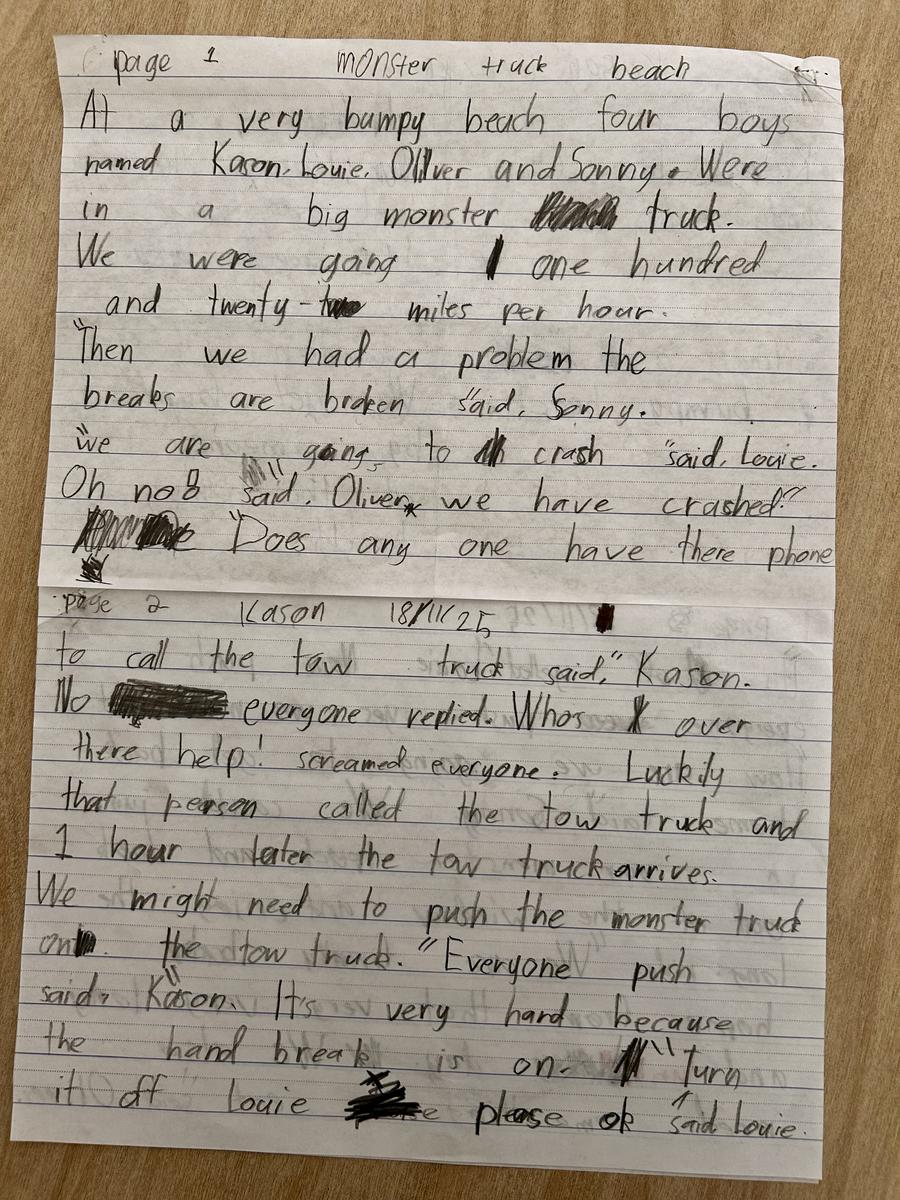 page 1 monster truck beach
At a very bumpy beach four boys
named Kason, Louie, Oliver and Sonny. Were
in a big monster truck.
We were going one hundred
and twenty-two miles per hour.
"Then we had a problem the
breaks are broken "said, Sonny.
"we are going, to crash "said, Louie.
Oh no! "said, Oliver, we have crashed?"
"Does any one have there phone
page 2 Kason 18/11/25
to call the tow truck said," Kason.
No everyone replied. Whos over
there help! screamed everyone. Luckily
that person called the tow truck and
1 hour later the tow truck arrives.
We might need to push the monster truck
on the tow truck. "Everyone push
said, "Kason. It's very hard because
the hand break is on. "Turn
it off Louie please ok said Louie.